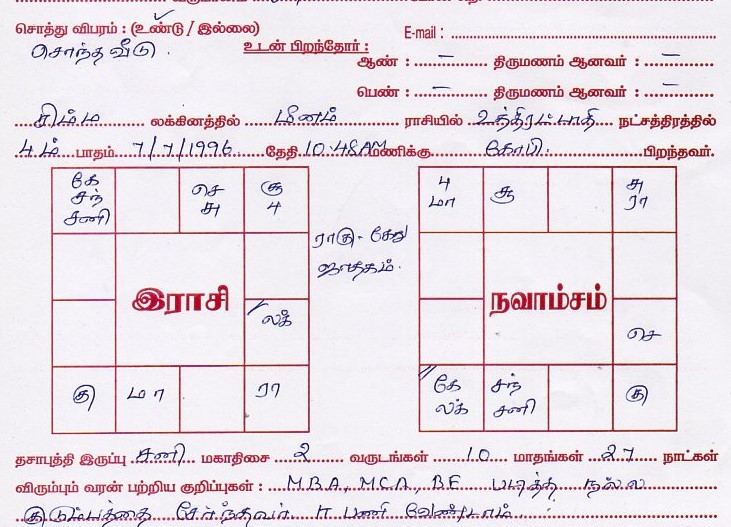 சொத்து விபரம் : (உண்டு / இல்லை) E-mail :
சொந்த வீடு. உடன் பிறந்தோர் :
ஆண் : – திருமணம் ஆனவர் : –
பெண் : – திருமணம் ஆனவர் : –
சிம்ம லக்கினத்தில் மீனம் ராசியில் உத்திரட்டாதி நட்சத்திரத்தில்
4ம் பாதம் 7/7/1996 தேதி 10.48AM மணிக்கு கோபி பிறந்தவர்.
கே சந் சனி
செ சு
சூ 4
ராகு - கேது ஜாதகம்.
இராசி
லக்
கு
மா
ரா
4 மா
சூ
சு ரா
நவாம்சம்
செ
கே லக்
சந் சனி
கு
தசாபுத்தி இருப்பு சனி மகாதிசை 2 வருடங்கள் 10 மாதங்கள் 27 நாட்கள்
விரும்பும் வரன் பற்றிய குறிப்புகள் : MBA, MCA, BE படித்த நல்ல
குடும்பத்தை சேர்ந்தவர் IT பணி வேண்டாம்